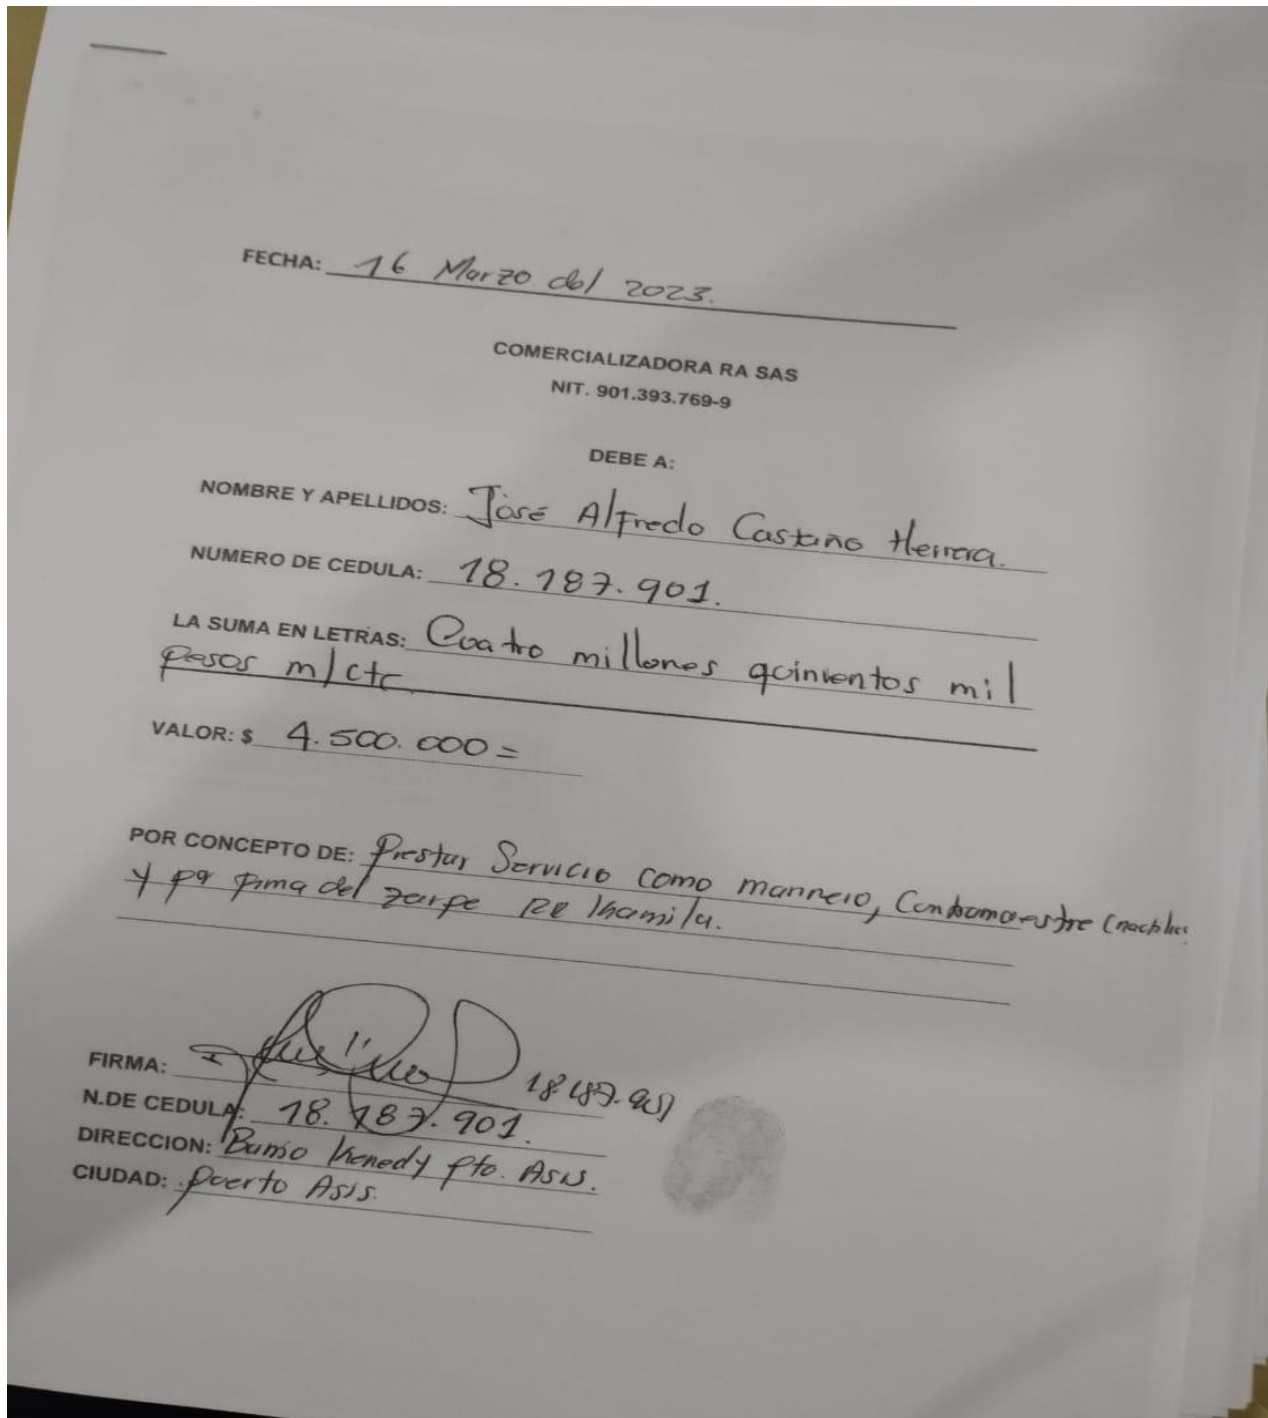 FECHA: 16 Marzo del 2023.
COMERCIALIZADORA RA SAS
NIT. 901.393.769-9
DEBE A:
NOMBRE Y APELLIDOS: José Alfredo Castaño Herrera.
NUMERO DE CEDULA: 18.187.901.
LA SUMA EN LETRAS: Cuatro millones quinientos mil
pesos m/cte
VALOR: $ 4.500.000=
POR CONCEPTO DE: Prestar Servicio como marinero, Contramaestre
y por firma del zarpe RR Kamila.
FIRMA: 18.187.901
N.DE CEDULA: 18.187.901.
DIRECCION: Barrio Kenedy Pto. Asis.
CIUDAD: Puerto Asis.